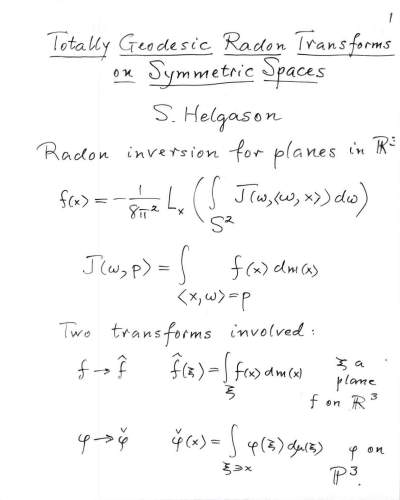 1
Totally Geodesic Radon Transforms
on Symmetric Spaces
S. Helgason
Radon inversion for planes in ℝ³
f(x) = -1/8π² Lₓ ( ∫_S² J(ω,⟨ω,x⟩) dω )
J(ω,p) = ∫_⟨x,ω⟩=p f(x) dm(x)
Two transforms involved:
f → f̂ f̂(ξ) = ∫_ξ f(x) dm(x) ξ a plane f on ℝ³
φ → φ̌ φ̌(x) = ∫_ξ∋x φ(ξ) dμ(ξ) φ on ℙ³.